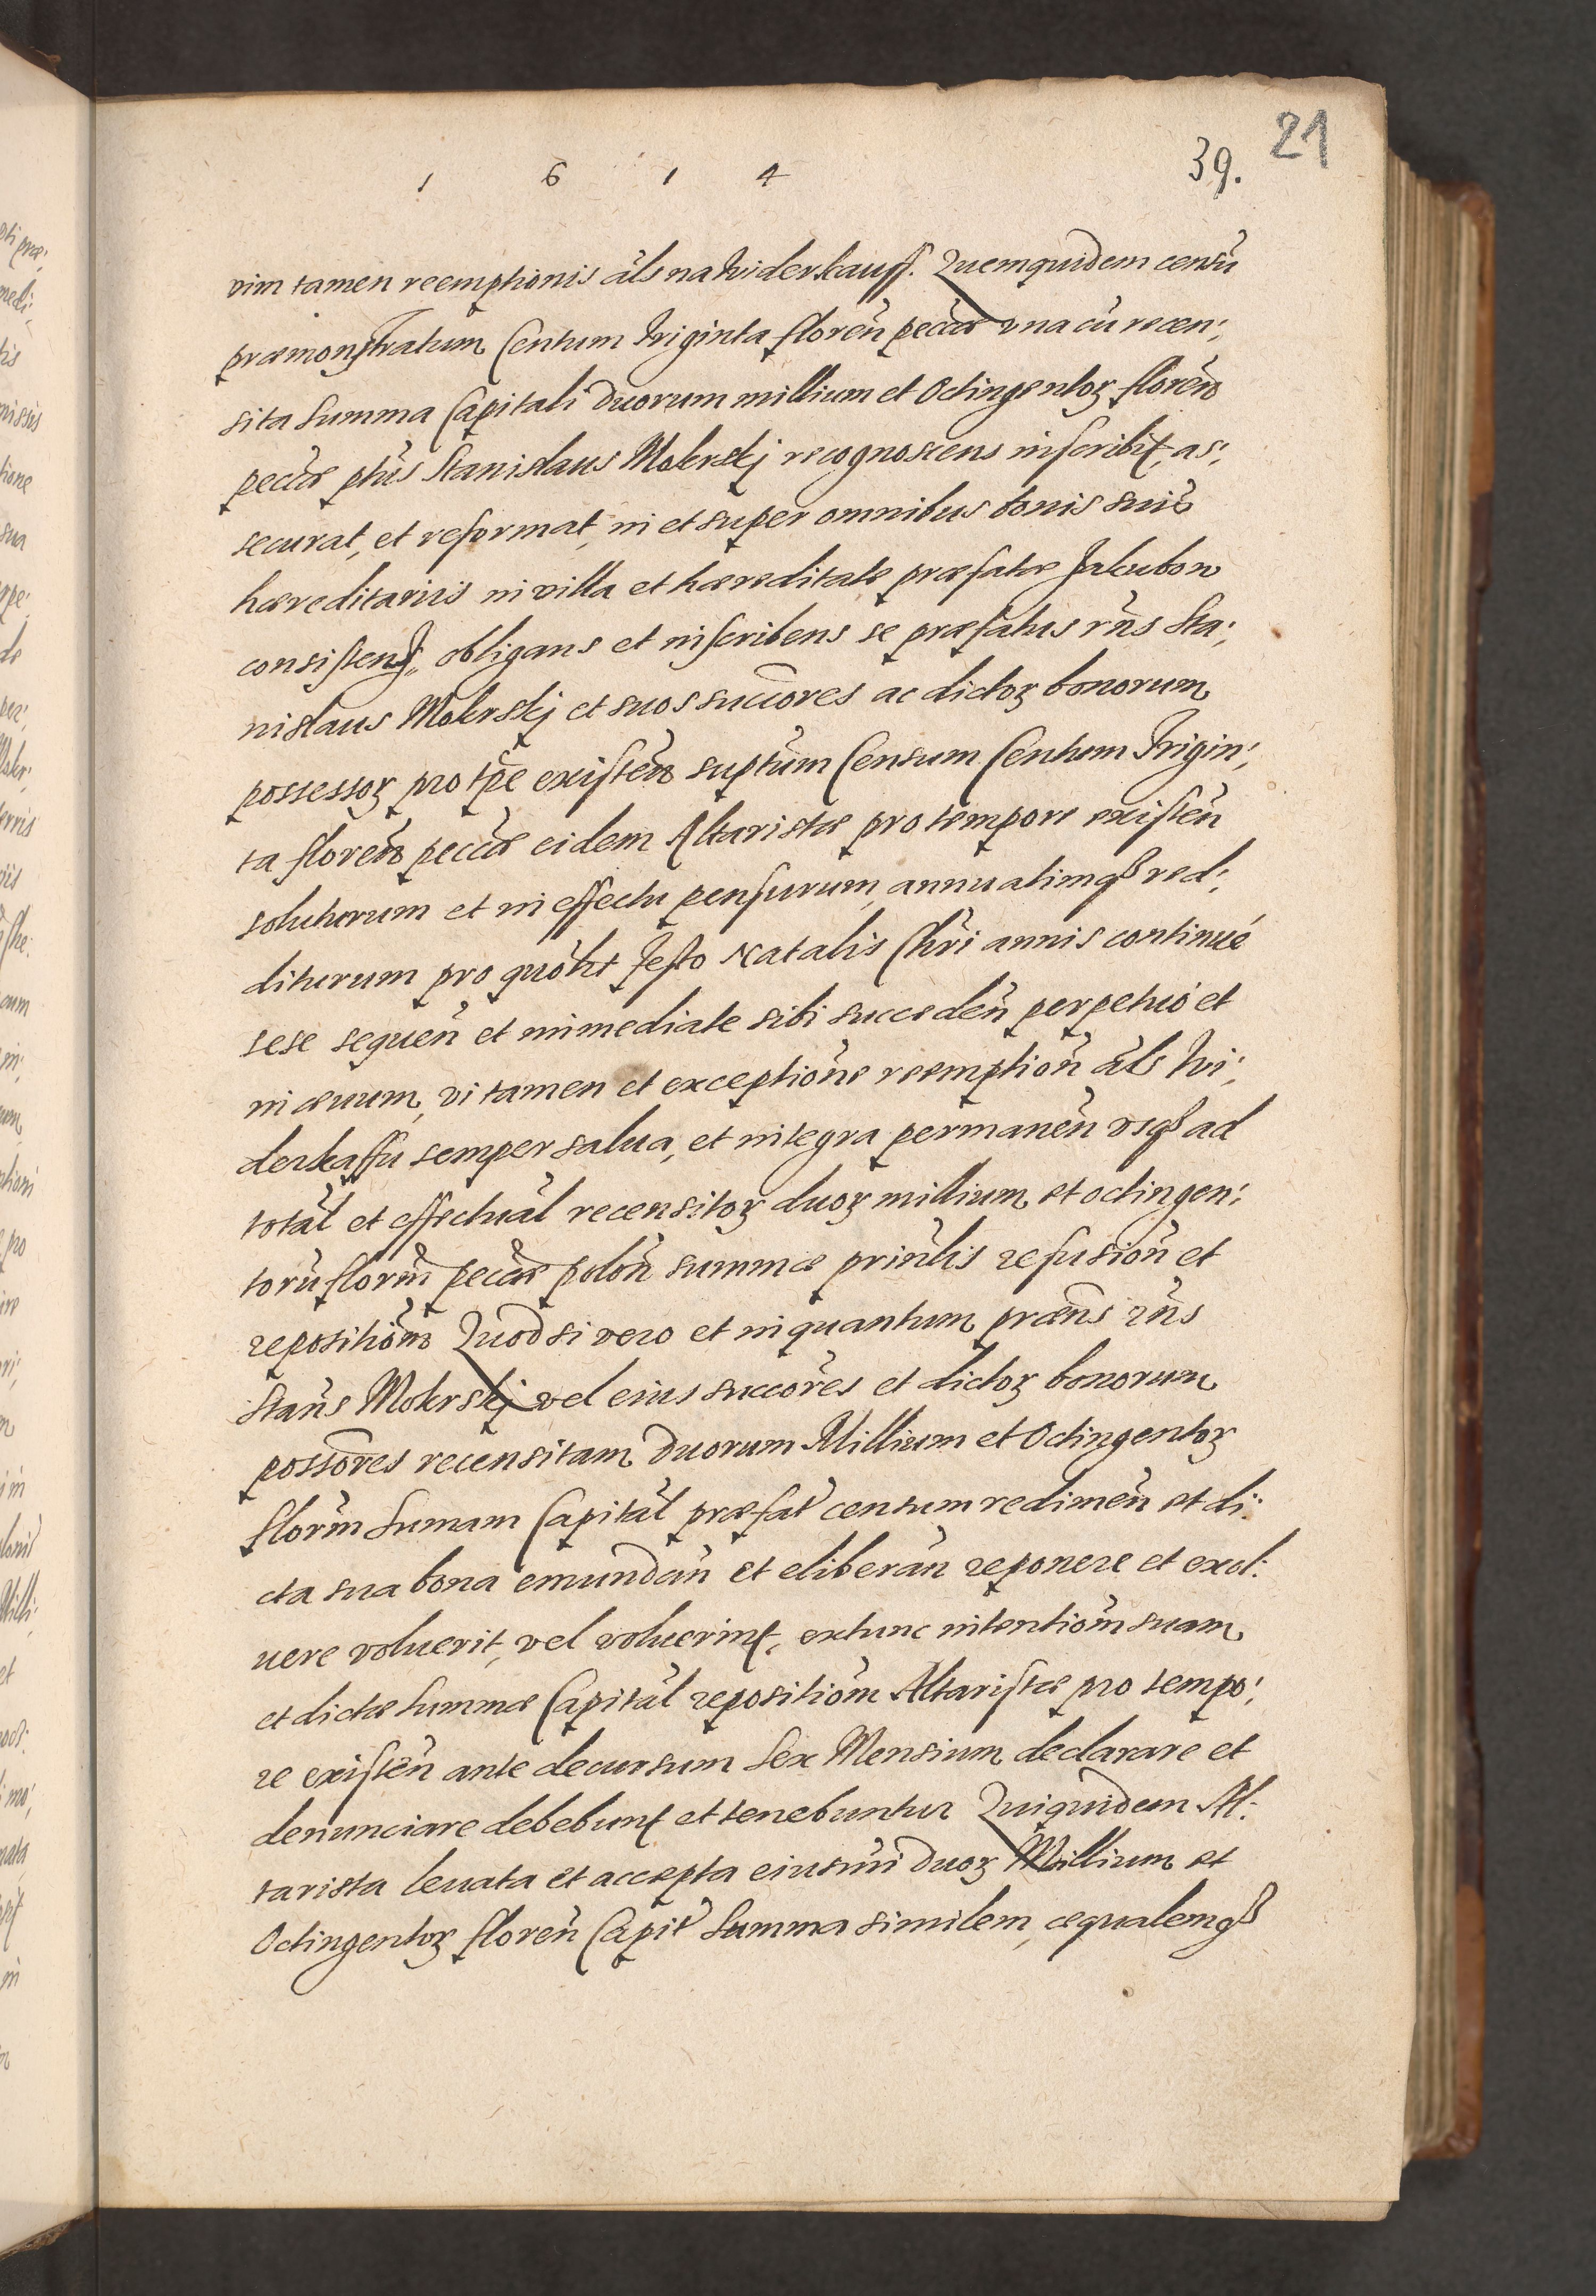 1 6 1 4 39. 21
vim tamen reemptionis als na widerkauff. Quemquidem censũ
præmonstratum Centum Triginta floren̄ pecuæ vna cũ recen:
sita Summa Capitali Duorum millium et Octingentoꝝ floren̄
pecũæ pñs Stanislaus Mokrskj recognoscens inscribit, as:
securat, et reformat, in et super omnibus bonis suis
hæreditariis in villa et hæreditate præfatæ Jakubow
consisten, obligans et inscribens se præfatus rñs Sta:
nislaus Mokrskj et suos succõres ac dictoꝝ bonorum
possessoꝝ pro tpe existen̄ suptum Censum Centum Trigin:
ta floren̄ pecũæ eidem Altaristæ pro tempore existen̄
soluturum et in effectu pensurum, annuatimqꝫ red:
diturum pro quolt Festo Natalis Chri annis continué
sese sequen̄ et immediate sibi succeden̄ perpetuò et
in ævum, vi tamen et exceptione reemption̄ als wi:
derkaffu semper salua, et integra permanen̄ vsqꝫ ad
total et effectual recensitoꝝ duoꝝ millium et octingen:
torũ florin̄ pecuæ polon̄ summæ prinlis refusion̄ et
reposition̄ Quod si vero et inquantum præns rñs
Stans Mokrskj vel eius succores et dictoꝝ bonorum
possores recensitam Duorum Millium et Octingentoꝝ
florin̄ Sumam Capital præfat censum redimen̄ et di:
cta sua bona emundan̄ et eliberan̄ reponere et exol:
uere voluerit, vel voluerint, extunc intentiom suam
et dictæ Summæ Capital repositiom Altaristæ pro tempo:
re existen̄ ante decursum Sex Mensium declarare et
denunciare debebunt et tenebuntur Quiquidem Al:
tarista leuata et accepta eiusmi Duoꝝ Millium et
Octingentoꝝ floren̄ Capit Summa similem, æqualemqꝫ